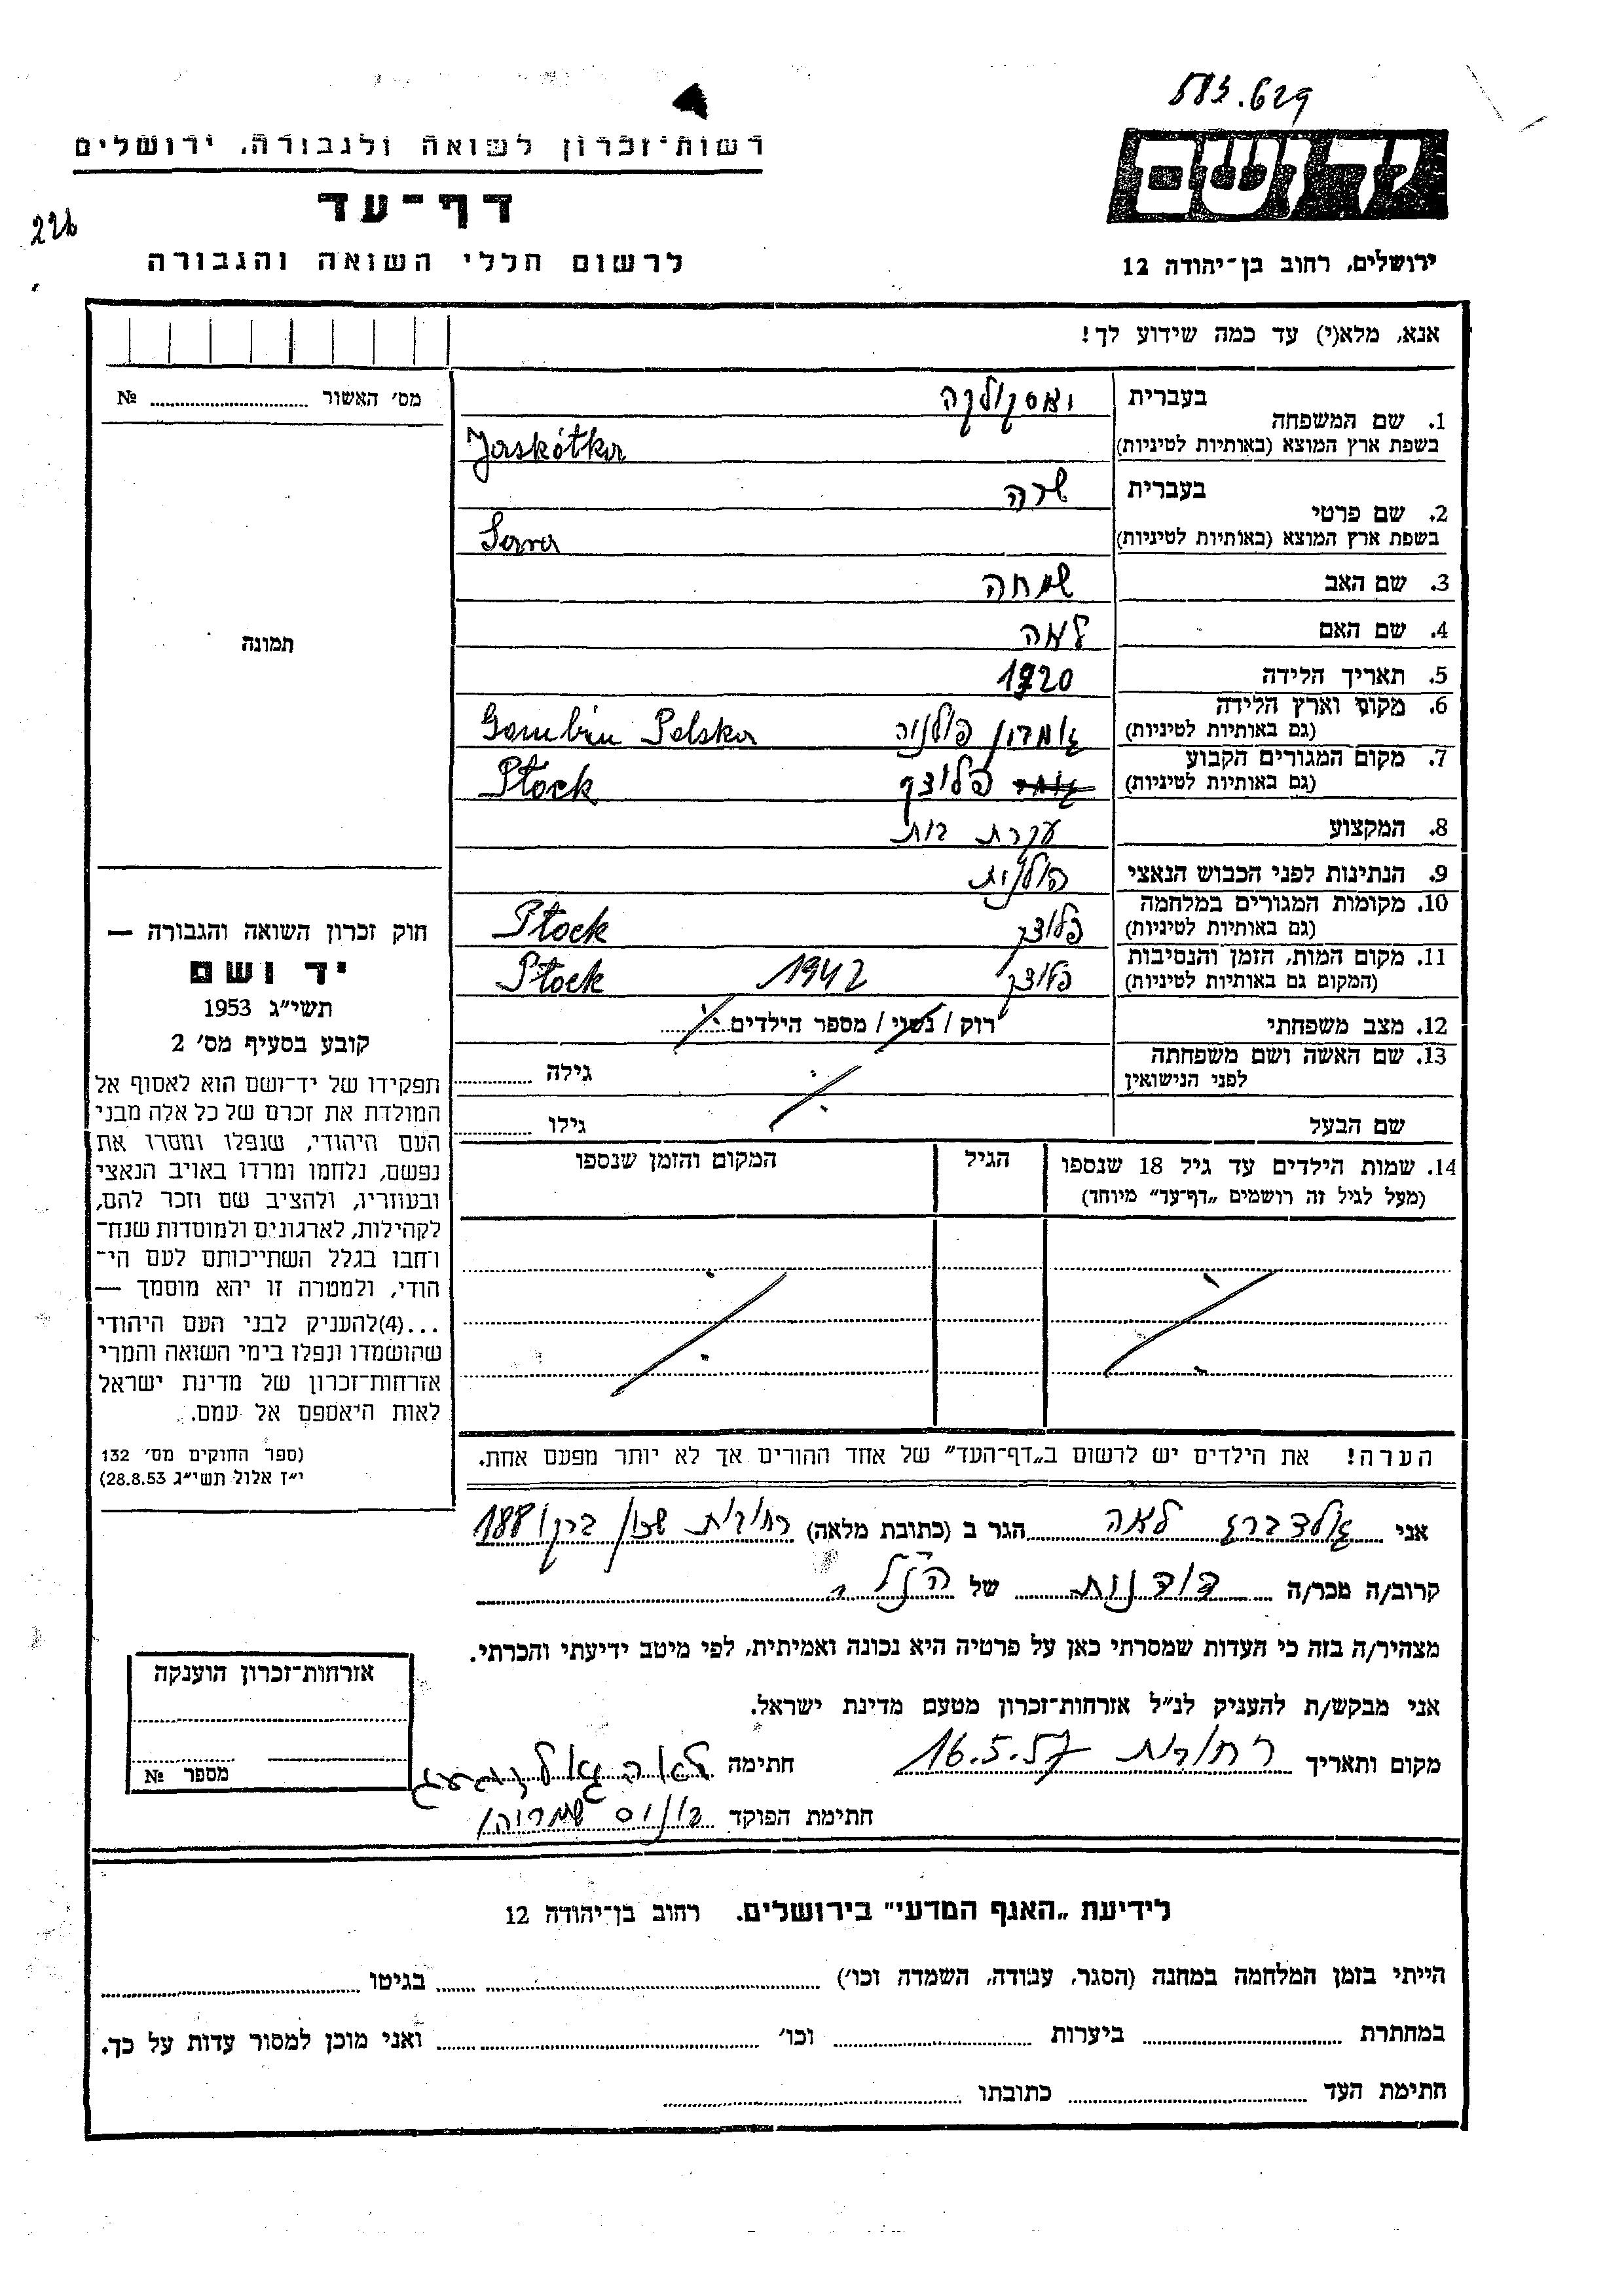 583.629
רשות־זכרון לשואה ולגבורה, ירושלים
יד ושם
דף־עד
226
לרשום חללי השואה והגבורה
ירושלים, רחוב בן־יהודה 12
אנא, מלא(י) עד כמה שידוע לך!
מס' האשור № ....................
1. שם המשפחה בעברית יאסקולקה
בשפת ארץ המוצא (באותיות לטיניות) Jaskółka
2. שם פרטי בעברית שרה
בשפת ארץ המוצא (באותיות לטיניות) Sara
3. שם האב שמחה
4. שם האם
תמונה
5. תאריך הלידה 1920
6. מקום וארץ הלידה
(גם באותיות לטיניות) גומבין פולניה Gombin Polska
7. מקום המגורים הקבוע
(גם באותיות לטיניות) פלוצק Płock
8. המקצוע עקרת בית
9. הנתינות לפני הכבוש הנאצי פולנית
10. מקומות המגורים במלחמה
(גם באותיות לטיניות) פלוצק Płock
11. מקום המות, הזמן והנסיבות
(המקום גם באותיות לטיניות) פלוצק 1942 Płock
12. מצב משפחתי רוק / נשוי / מספר הילדים
13. שם האשה ושם משפחתה
לפני הנישואין גילה
שם הבעל גילו
14. שמות הילדים עד גיל 18 שנספו הגיל המקום והזמן שנספו
(מעל לגיל זה רושמים „דף־עד” מיוחד)
חוק זכרון השואה והגבורה —
יד ושם
תשי"ג 1953
קובע בסעיף מס' 2
תפקידו של יד־ושם הוא לאסוף אל
המולדת את זכרם של כל אלה מבני
העם היהודי, שנפלו ומסרו את
נפשם, נלחמו ומרדו באויב הנאצי
ובעוזריו, ולהציב שם וזכר להם,
לקהילות, לארגונים ולמוסדות שנח־
רחבו בגלל השתייכותם לעם הי־
הודי, ולמטרה זו יהא מוסמך —
...(4)להעניק לבני העם היהודי
שהושמדו ונפלו בימי השואה והמרי
אזרחות־זכרון של מדינת ישראל
לאות היאספם אל עמם.
(ספר החוקים מס' 132
י"ז אלול תשי"ג 28.8.53)
הערה! את הילדים יש לרשום ב„דף־העד” של אחד ההורים אך לא יותר מפעם אחת.
אני גולדברג לאה הגר ב (כתובת מלאה) רחובות שכון 188
קרוב/ה מכר/ה בת דודנות של הנ"ל
מצהיר/ה בזה כי העדות שמסרתי כאן על פרטיה היא נכונה ואמיתית, לפי מיטב ידיעתי והכרתי.
אני מבקש/ת להעניק לנ"ל אזרחות־זכרון מטעם מדינת ישראל.
מקום ותאריך רחובות 16.5.57 חתימה לאה גאלדבערג
חתימת הפוקד
אזרחות־זכרון הוענקה
מספר №
לידיעת „האגף המדעי” בירושלים. רחוב בן־יהודה 12
הייתי בזמן המלחמה במחנה (הסגר, עבודה, השמדה וכו') בגיטו
במחתרת ביערות וכו' ואני מוכן למסור עדות על כך.
חתימת העד כתובתו